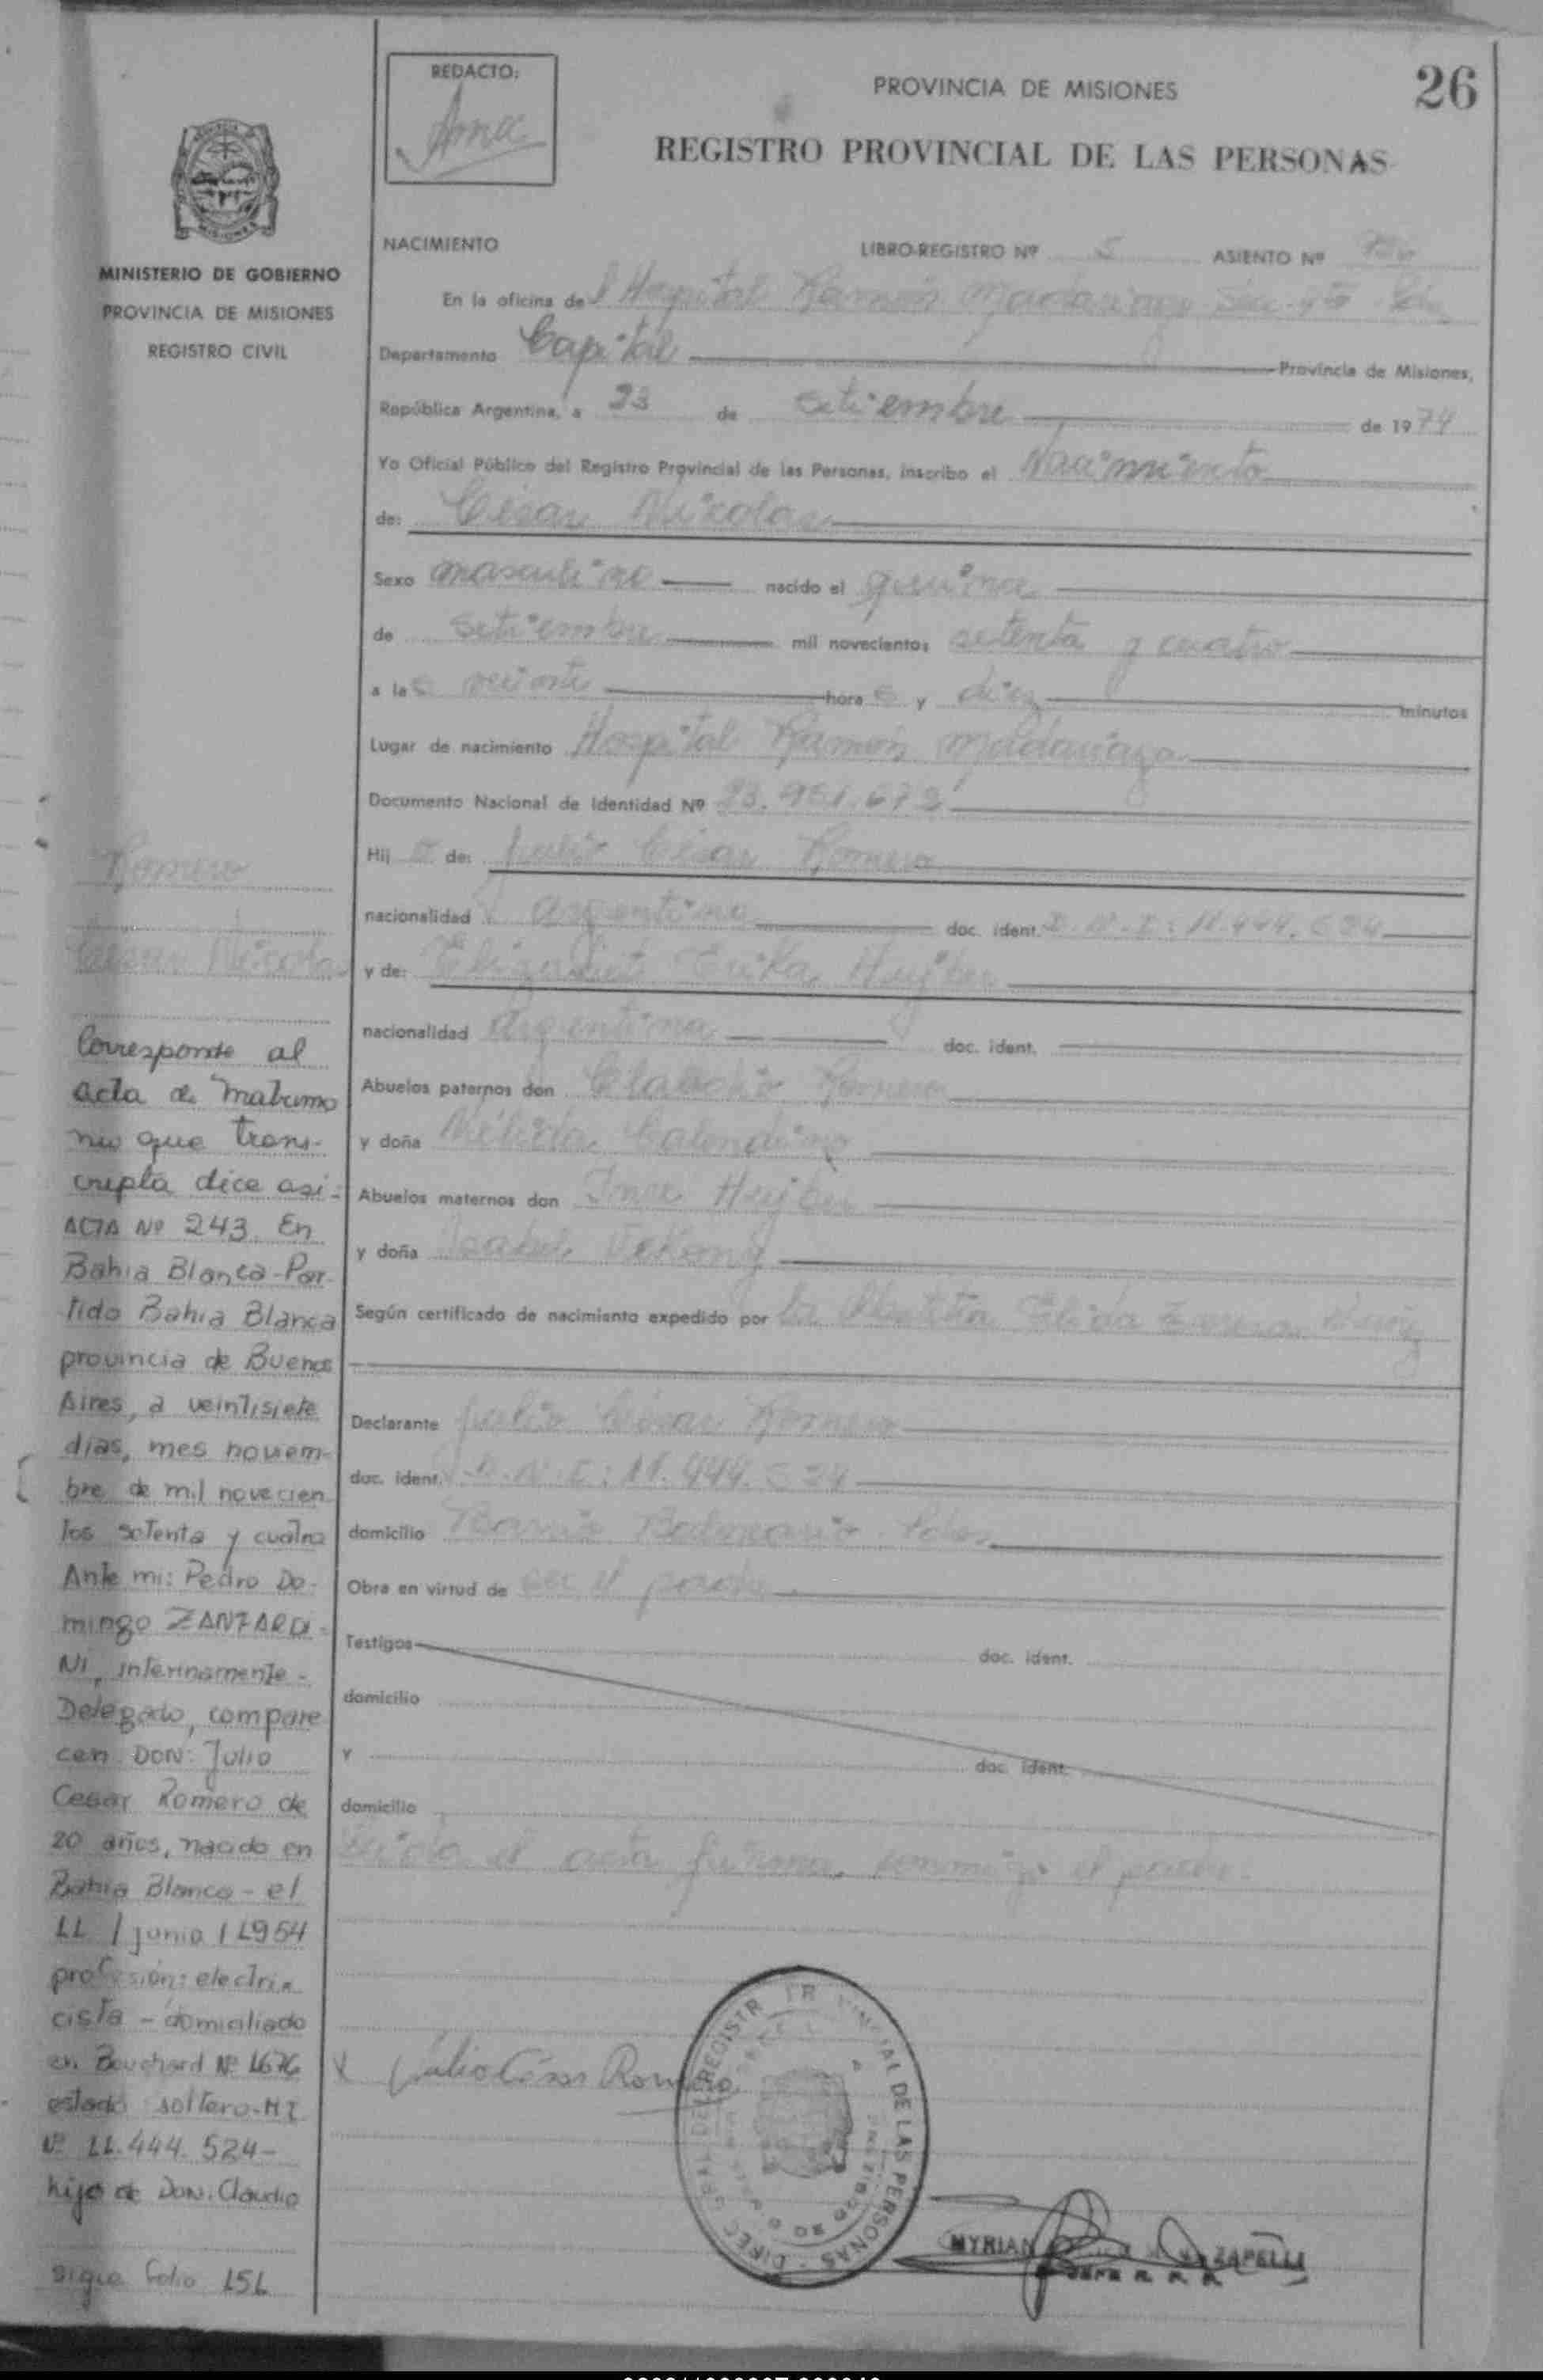 REDACTO:
Ana
PROVINCIA DE MISIONES
26
REGISTRO PROVINCIAL DE LAS PERSONAS
MINISTERIO DE GOBIERNO
PROVINCIA DE MISIONES
REGISTRO CIVIL
NACIMIENTO LIBRO-REGISTRO Nº 5 ASIENTO Nº
En la oficina del Hospital Ramón Madariaga
Departamento Capital Provincia de Misiones,
República Argentina, a 23 de setiembre de 1974
Yo Oficial Público del Registro Provincial de las Personas, inscribo el Nacimiento
de: César Nicolas
Sexo masculino nacido el quince
de setiembre mil novecientos setenta y cuatro
a las veinte horas y diez minutos
Lugar de nacimiento Hospital Ramón Madariaga
Documento Nacional de Identidad Nº 23.951.673
Hijo de: Julio César Romero
nacionalidad argentino doc. ident. D.N.I: 11.444.524
y de: Elizabeth Erika
nacionalidad argentina doc. ident.
Abuelos paternos don Claudio Romero
y doña Nélida
Abuelos maternos don
y doña Isabel
Según certificado de nacimiento expedido por la
Declarante Julio César Romero
doc. ident. D.N.I: 11.444.524
domicilio Barrio Balneario
Obra en virtud de ser el padre
Testigos doc. ident.
domicilio
y doc. ident.
domicilio
Leída el acta firma conmigo el padre.
Julio César Romero
DIREC. GRAL. DEL REGISTR PROVINCIAL DE LAS PERSONAS
MYRIAN ZAPELLI
JEFE R. P. P.
Romero
César Nicolas
Corresponde al
acta de matrimo
nio que trans-
cripta dice asi:
ACTA Nº 243. En
Bahia Blanca-Par-
tido Bahia Blanca
provincia de Buenos
Aires, a veintisiete
dias, mes noviem-
bre de mil novecien
tos setenta y cuatro
Ante mi: Pedro Do-
mingo ZANFARDI-
NI, interinamente-
Delegado, compare
cen DON: Julio
Cesar Romero de
20 años, nacido en
Bahia Blanca - el
11 / junio / 1954
profesion: electri-
cista - domiciliado
en Bouchard Nº 1676
estado soltero-MI
Nº 11.444.524-
hijo de DON: Claudio
sigue folio 151